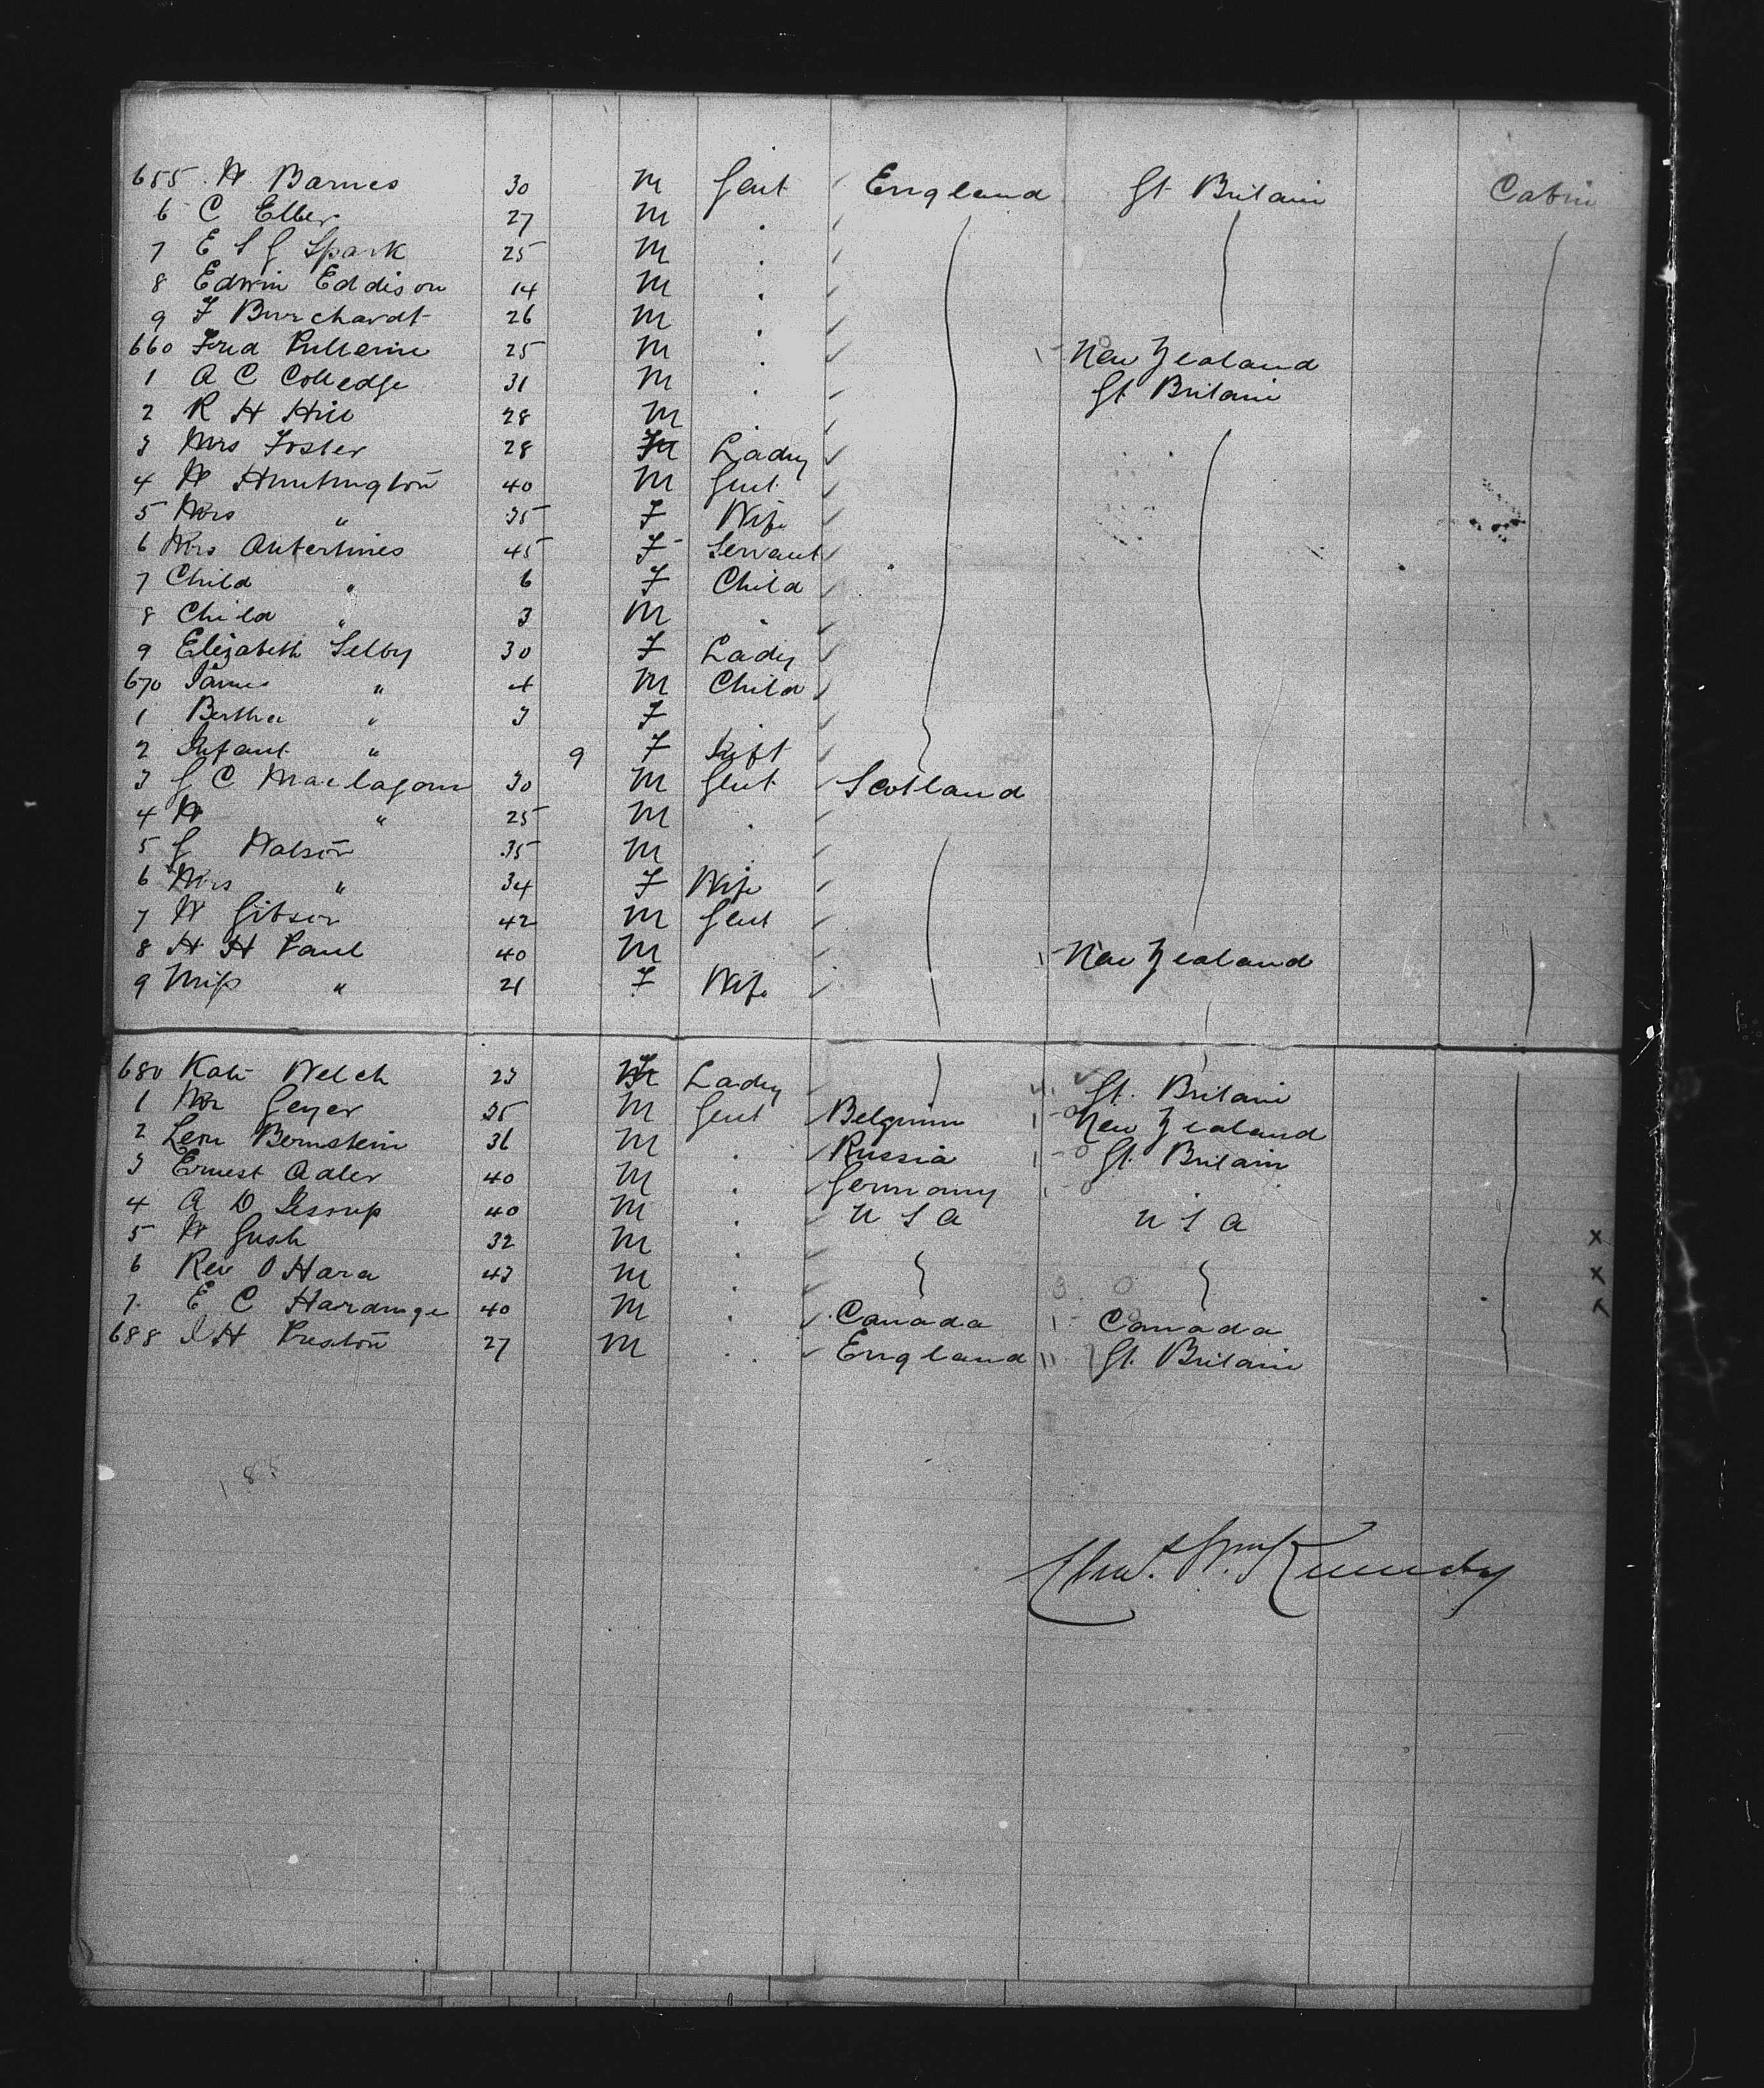 655 W Barnes 30 M Gent England Gt Britain Cabin
6 C Elber 27 M
7 E S G Spark 25 M
8 Edwin Eddison 14 M
9 F Burchardt 26 M
660 Fred 25 M New Zealand
1 A C Colledge 31 M Gt Britain
2 R H Hill 28 M
3 Mrs Foster 28 F Lady
4 W Huntington 40 M Gent
5 Mrs " 35 F Wife
6 Mrs 45 F Servant
7 Child " 6 F Child
8 Child " 3 M
9 Elizabeth Selby 30 F Lady
670 James " 4 M Child
1 Bertha " 3 F
2 Infant " 9 F Inft
3 G C Maclagan 30 M Gent Scotland
4 W " 25 M
5 G Watson 35 M
6 Mrs " 34 F Wife
7 W Gibson 42 M Gent
8 H H Paul 40 M New Zealand
9 Miss " 21 F Wife
680 Kate Welch 23 F Lady Gt. Britain
1 Mr Geyer 35 M Gent Belgium New Zealand
2 Leon Bernstein 36 M Russia Gt. Britain
3 Ernest Adler 40 M Germany
4 A D Jessup 40 M U S A U S A
5 W Gush 32 M x
6 Rev O Hara 43 M x
7 E C Hardinge 40 M Canada Canada x
688 J H Preston 27 M England Gt. Britain
188
Kennedy